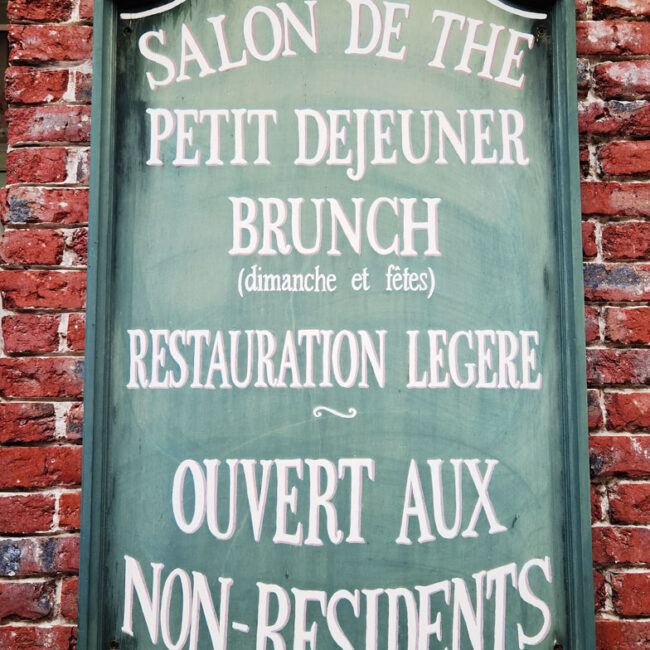 SALON DE THE
PETIT DEJEUNER
BRUNCH
(dimanche et fêtes)
RESTAURATION LEGERE
OUVERT AUX
NON-RESIDENTS